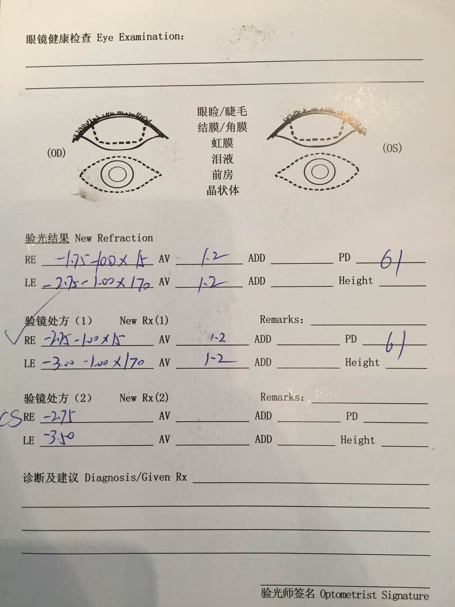 眼镜健康检查 Eye Examination:
眼睑/睫毛
结膜/角膜
(OD) 虹膜 (OS)
泪液
前房
晶状体
验光结果 New Refraction
RE -1.75 -1.00 x 15 AV 1.2 ADD PD 61
LE -2.75 -1.00 x 170 AV 1.2 ADD Height
验镜处方 (1) New Rx(1) Remarks:
RE -2.25 -1.00 x 15 AV 1.2 ADD PD 61
LE -3.00 -1.00 x 170 AV 1.2 ADD Height
验镜处方 (2) New Rx(2) Remarks:
RE -2.75 AV ADD PD
LE -3.50 AV ADD Height
诊断及建议 Diagnosis/Given Rx
验光师签名 Optometrist Signature